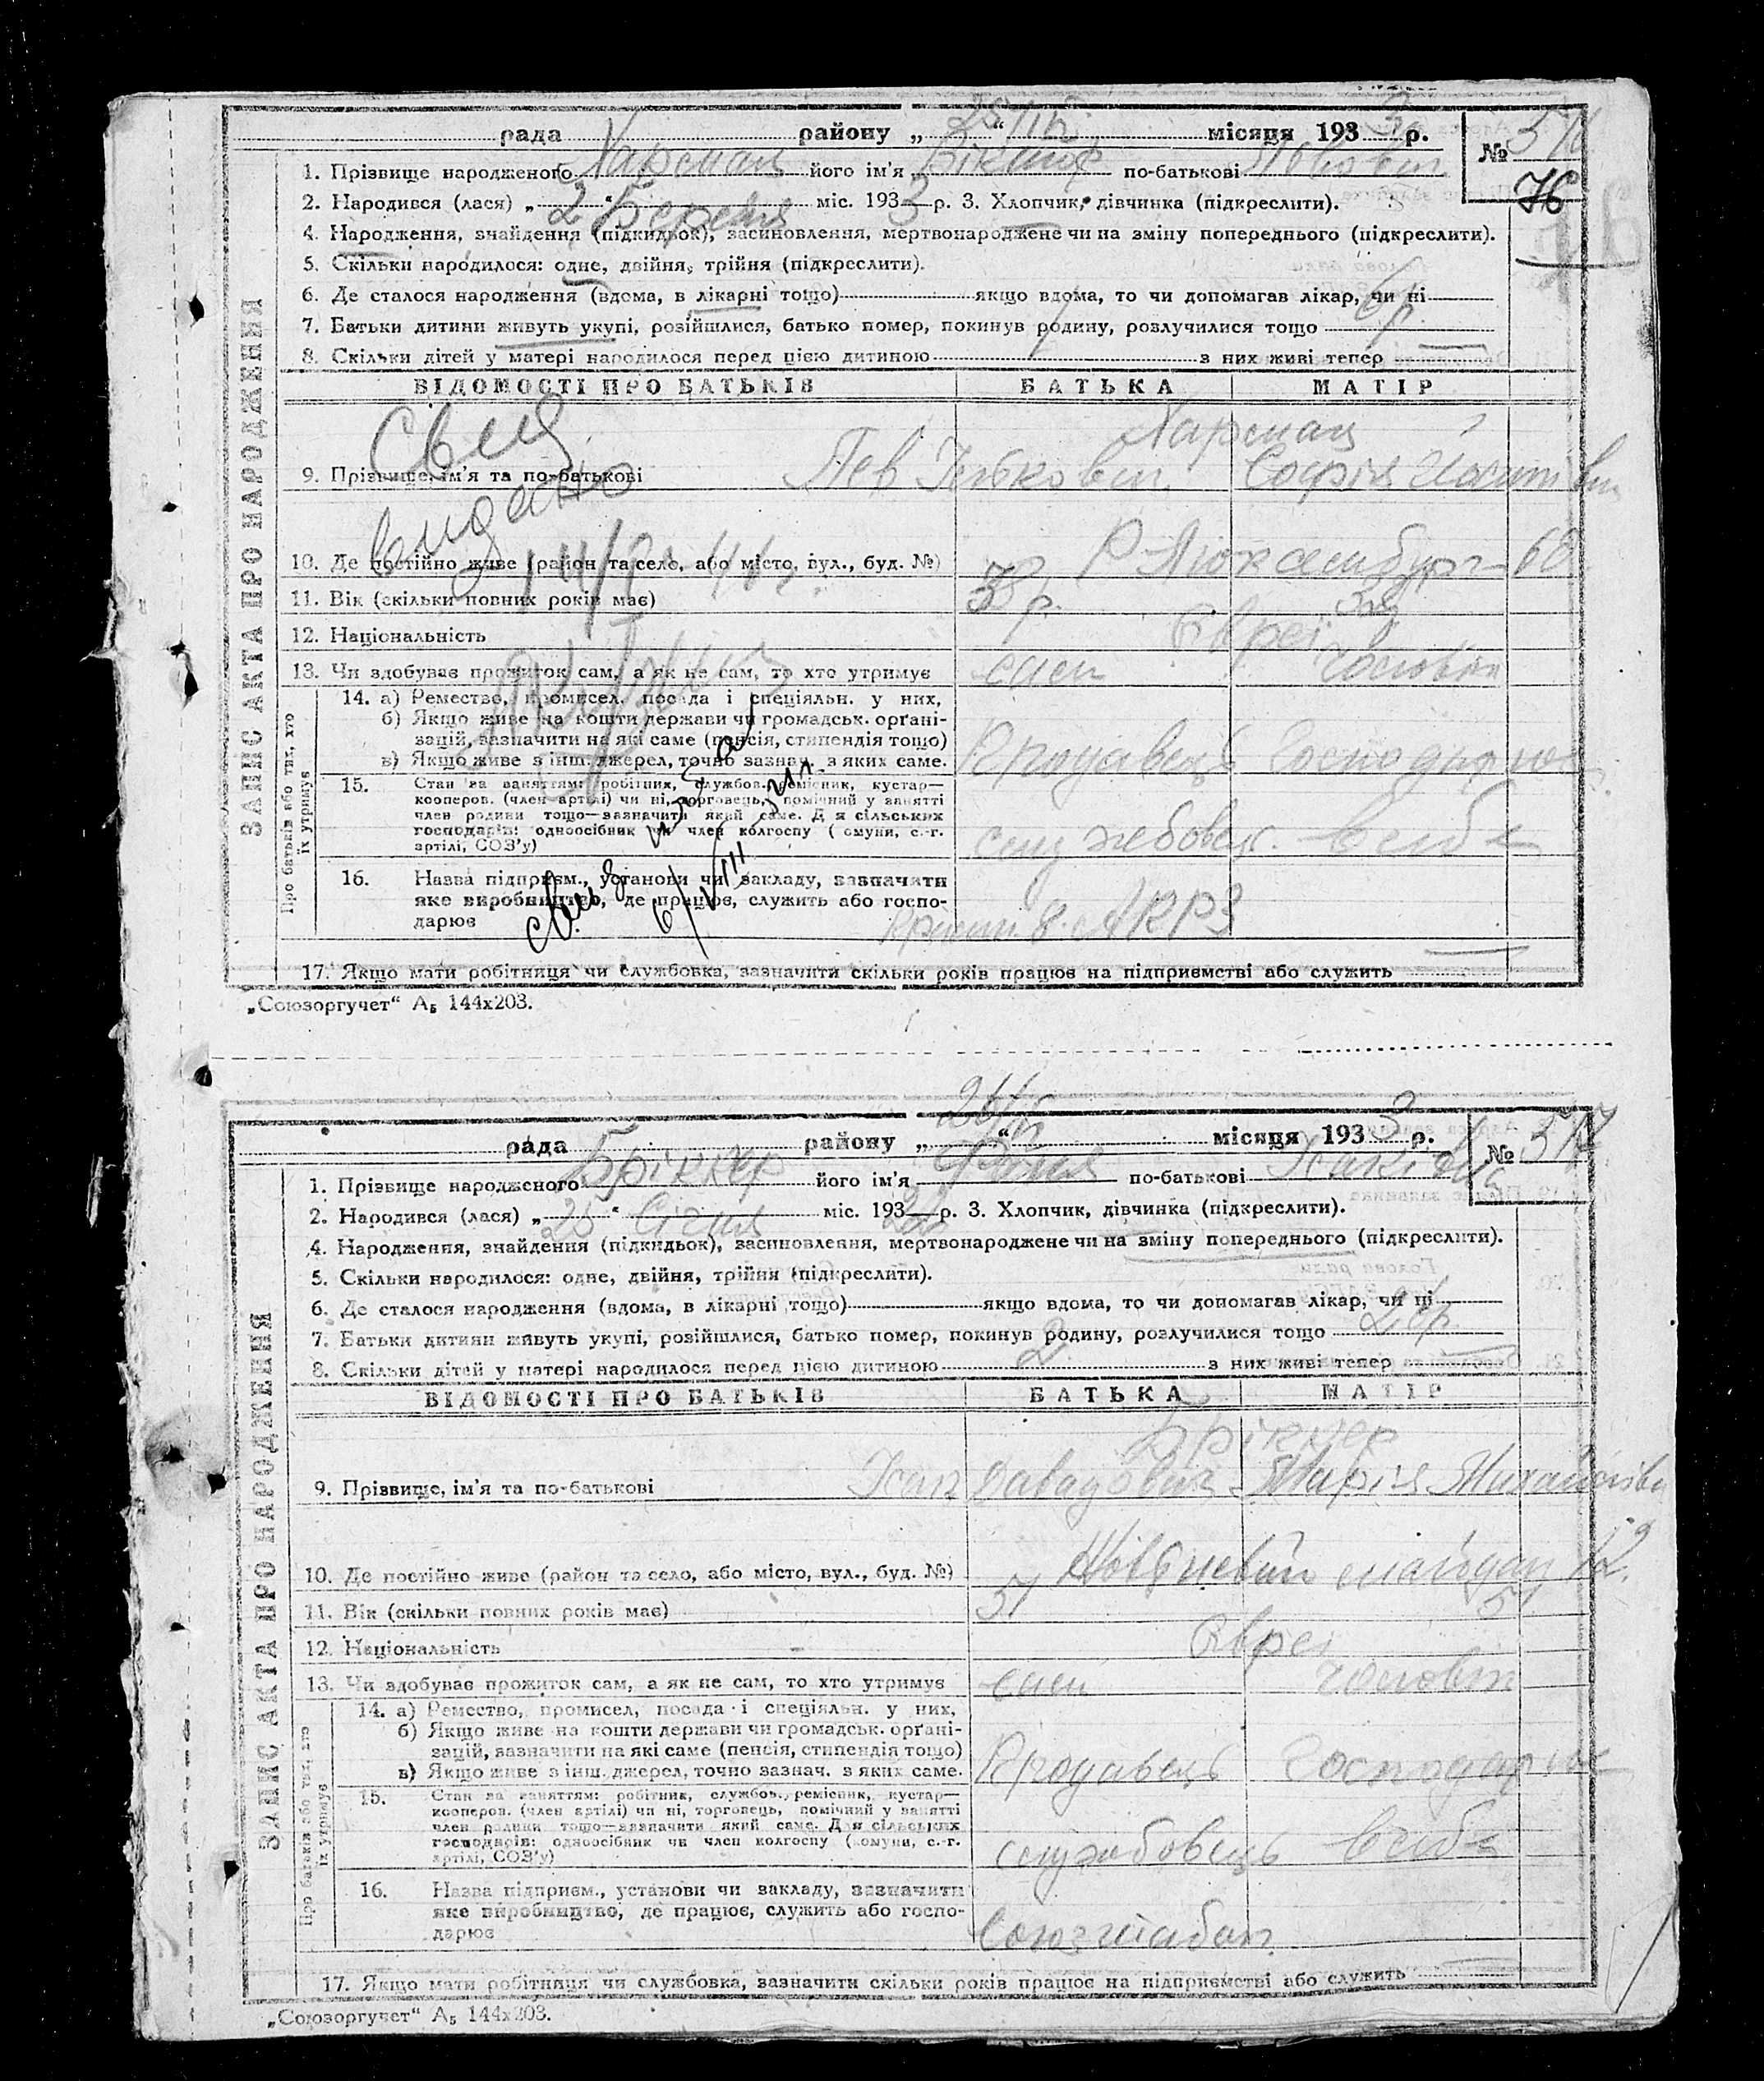 рада району „28/III“ місяця 1933 р.
№ 516
76
1. Прізвище народженого Харснац його ім'я Віктор по-батькові Львович
2. Народився (лася) „2“ Березня міс. 1933 р. 3. Хлопчик, дівчинка (підкреслити).
4. Народження, знайдення (підкидьок), засиновлення, мертвонароджене чи на зміну попереднього (підкреслити).
5. Скільки народилося: одне, двійня, трійня (підкреслити).
6. Де сталося народження (вдома, в лікарні тощо) якщо вдома, то чи допомагав лікар, чи ні
7. Батьки дитини живуть укупі, розійшлися, батько помер, покинув родину, розлучилися тощо
8. Скільки дітей у матері народилося перед цією дитиною з них живі тепер
ЗАПИС АКТА ПРО НАРОДЖЕННЯ
ВІДОМОСТІ ПРО БАТЬКІВ БАТЬКА МАТІР
9. Прізвище, ім'я та по-батькові Лев Софія
видано
10. Де постійно живе (район та село, або місто, вул., буд. №) Р Люксембург 68
11. Вік (скільки повних років має) р.
12. Національність Євреї
13. Чи здобуває прожиток сам, а як не сам, то хто утримує сам чоловік
Про батьків або тих, хто їх утримує
14. а) Ремество, промисел, посада і спеціяльн. у них,
б) Якщо живе на кошти держави чи громадськ. орґані-
зацій, зазначити на які саме (пенсія, стипендія тощо)
в) Якщо живе з інш. джерел, точно зазнач. з яких саме. Продавець Господарює
15. Стан за заняттям: робітник, службов. ремісник, кустар—
кооперов. (член артілі) чи ні, торговець, помічний у занятті
член родини тощо—зазначити який саме. Для сільських
господарів: одноосібник чи член колгоспу (комуни, с.-г.
артілі, СОЗ'у) службовець.
16. Назва підприєм., установи чи закладу, зазначити
яке виробництво, де працює, служить або госпо-
дарює
17. Якщо мати робітниця чи службовка, зазначити скільки років працює на підприємстві або служить
„Союзоргучет“ А₅ 144х203.
рада району місяця 1933 р.
№ 517
1. Прізвище народженого Брікнер його ім'я Фаня по-батькові Ісаківна
2. Народився (лася) „25“ Січня міс. 193 р. 3. Хлопчик, дівчинка (підкреслити).
4. Народження, знайдення (підкидьок), засиновлення, мертвонароджене чи на зміну попереднього (підкреслити).
5. Скільки народилося: одне, двійня, трійня (підкреслити).
6. Де сталося народження (вдома, в лікарні тощо) якщо вдома, то чи допомагав лікар, чи ні
7. Батьки дитини живуть укупі, розійшлися, батько помер, покинув родину, розлучилися тощо
8. Скільки дітей у матері народилося перед цією дитиною 2 з них живі тепер
ЗАПИС АКТА ПРО НАРОДЖЕННЯ
ВІДОМОСТІ ПРО БАТЬКІВ БАТЬКА МАТІР
Брікнер
9. Прізвище, ім'я та по-батькові Ісак Давидович Марія Михайлівн
10. Де постійно живе (район та село, або місто, вул., буд. №) майдан 12.
11. Вік (скільки повних років має) 51 51
12. Національність Євреї
13. Чи здобуває прожиток сам, а як не сам, то хто утримує сам чоловік
Про батьків або тих, хто їх утримує
14. а) Ремество, промисел, посада і спеціяльн. у них,
б) Якщо живе на кошти держави чи громадськ. орґані-
зацій, зазначити на які саме (пенсія, стипендія тощо)
в) Якщо живе з інш. джерел, точно зазнач. з яких саме. Продавець Господарює
15. Стан за заняттям: робітник, службов., ремісник, кустар—
кооперов. (член артілі) чи ні, торговець, помічний у занятті
член родини тощо—зазначити який саме. Для сільських
господарів: одноосібник чи член колгоспу (комуни, с.-г.
артілі, СОЗ'у) службовець
16. Назва підприєм., установи чи закладу, зазначити
яке виробництво, де працює, служить або госпо-
дарює
17. Якщо мати робітниця чи службовка, зазначити скільки років працює на підприємстві або служить
„Союзоргучет“ А₅ 144х203.